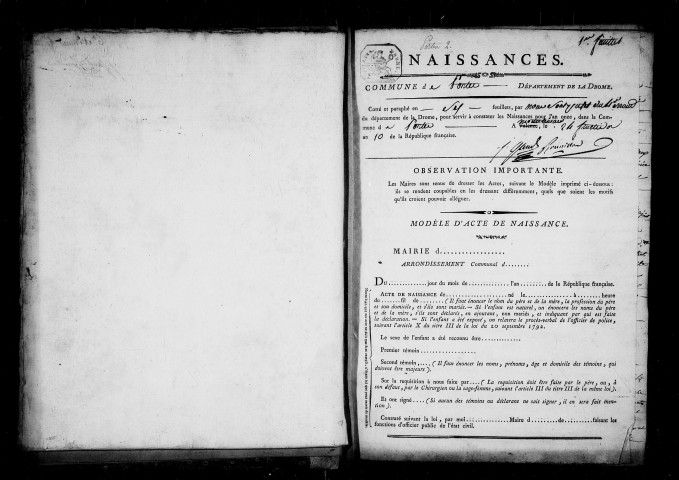 1er feuillet
NAISSANCES.
COMMUNE de Ponter DÉPARTEMENT DE LA DROME.
Cotté et paraphé en Six feuillets, par nous
du département de la Drome, pour servir à constater les Naissances pour l'an onze, dans la Com-
mune de Ponter A le 24 fructidor
an 10 de la République française.
OBSERVATION IMPORTANTE.
Les Maires sont tenus de dresser les Actes, suivant le Modèle imprimé ci-dessous:
ils se rendent coupables en les dressant différemment, quels que soient les motifs
qu'ils croient pouvoir alléguer.
MODÈLE D'ACTE DE NAISSANCE.
MAIRIE d..................
ARRONDISSEMENT Communal d.......
DU..............jour du mois de..............l'an........de la République française.
ACTE DE NAISSANCE de....................né le..............à..........heure
du.......fil de........(Il faut énoncer le nom du père et de la mère, la profession du père
et son domicile, et s'ils sont mariés. — Si l'enfant est naturel, on énoncera les noms du père
et de la mère, s'ils sont déclarés, en ajoutant, non mariés, et indiquant par qui est faite
la déclaration. — Si l'enfant a été exposé, on relatera le procès-verbal de l'officier de police,
suivant l'article X du titre III de la loi du 20 septembre 1792.
Le sexe de l'enfant a été reconnu être.............
Premier témoin..................
Second témoin,....(Il faut énoncer les noms, prénoms, âge et domicile des témoins, qui
doivent être majeurs).
Sur la requisition à nous faite par....(La requisition doit être faite par le père, ou, à
son défaut, par le Chirurgien ou la sage-femme, suivant l'article III du titre III de la même loi).
Et ont signé....(Si aucun des témoins ou déclarans ne sait signer, il en sera fait men-
tion).
Constaté suivant la loi, par moi..............Maire d..............de........faisant les
fonctions d'officier public de l'état civil.